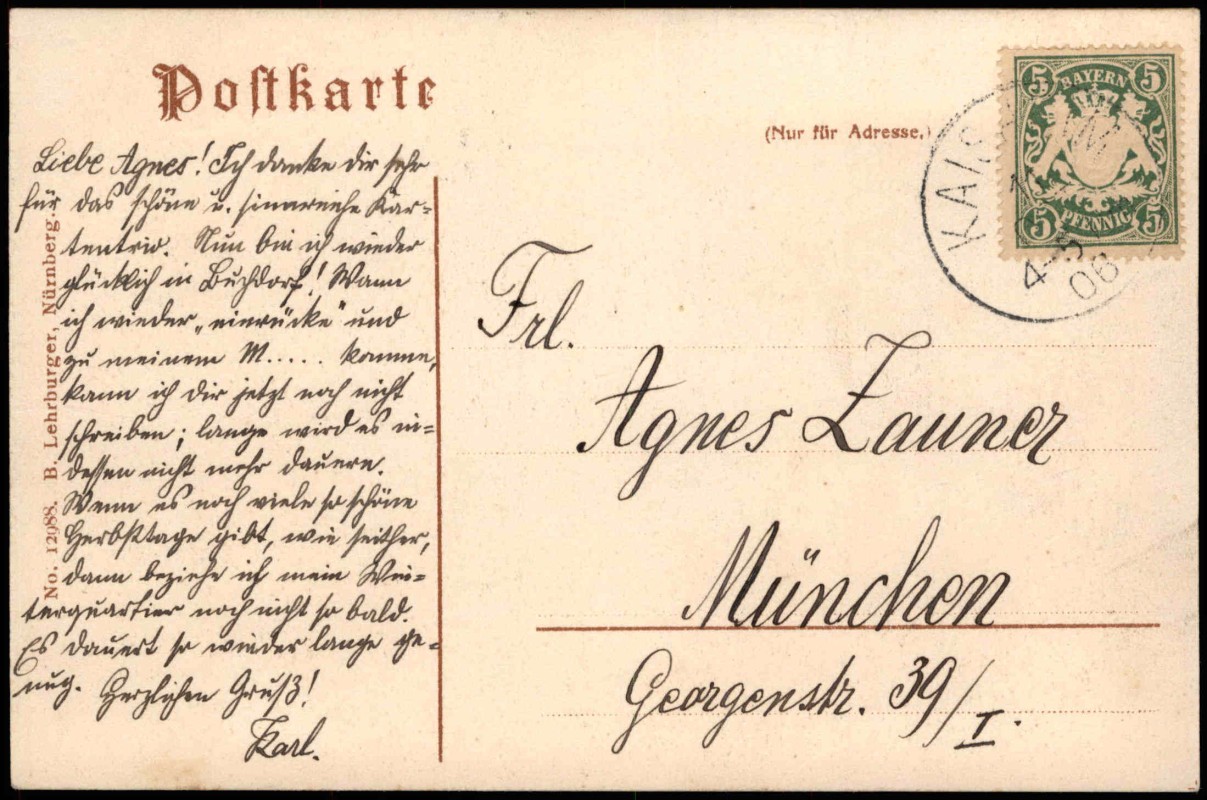 Postkarte
(Nur für Adresse.)
BAYERN
5 5
5 5
PFENNIG
KAIS
4-5
06
Liebe Agnes! Ich danke dir sehr
für das schöne u. sinnreiche Kar=
tentrio. Nun bin ich wieder
glücklich in Buchdorf! Wann
ich wieder „einrücke" und
zu meinem M..... komme,
kann ich dir jetzt noch nicht
schreiben; lange wird es in=
dessen nicht mehr dauern.
Wenn es noch viele so schöne
Herbsttage gibt, wie seither,
dann beziehe ich mein Win=
terquartier noch nicht so bald.
Es dauert so wieder lange ge=
nug. Herzlichen Gruß!
Karl.
No. 12988. B. Lehrburger, Nürnberg.
Frl.
Agnes Zauner
München
Georgenstr. 39/I.